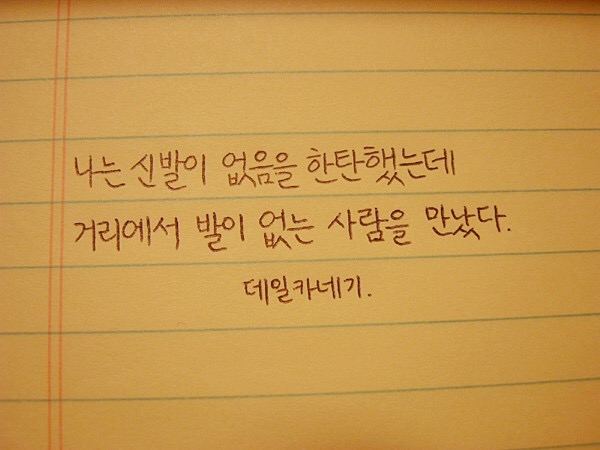 나는 신발이 없음을 한탄했는데
거리에서 발이 없는 사람을 만났다.
데일카네기.